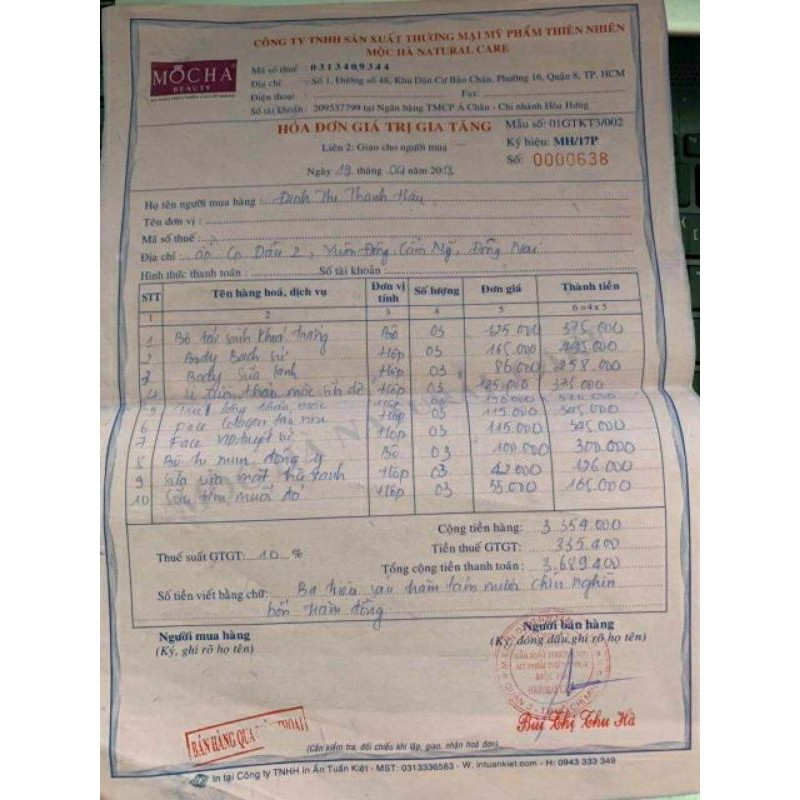 CÔNG TY TNHH SẢN XUẤT THƯƠNG MẠI MỸ PHẨM THIÊN NHIÊN
MỘC HÀ NATURAL CARE
MOCHA
BEAUTY
Mã số thuế : 0313409344
Địa chỉ : Số 1, Đường số 48, Khu Dân Cư Bảo Châu, Phường 16, Quận 8, TP. HCM
Điện thoại : Fax:
Số tài khoản : 209537799 tại Ngân hàng TMCP Á Châu - Chi nhánh Hòa Hưng
HÓA ĐƠN GIÁ TRỊ GIA TĂNG
Mẫu số: 01GTKT3/002
Liên 2: Giao cho người mua
Ký hiệu: MH/17P
Ngày 19 tháng 04 năm 2018
Số: 0000638
Họ tên người mua hàng : Đinh Thị Thanh Hậu
Tên đơn vị :
Mã số thuế :
Địa chỉ : ấp Cọ Dầu 2, Xuân Đông, Cẩm Mỹ, Đồng Nai
Hình thức thanh toán : Số tài khoản :
STT Tên hàng hoá, dịch vụ Đơn vị tính Số lượng Đơn giá Thành tiền
1 2 3 4 5 6=4x5
1 Bộ tái sinh khoá trắng Bộ 03 125.000 375.000
2 Body Bạch sứ Hộp 03 165.000 495.000
3 Body Sữa lạnh Hộp 03 86.000 258.000
4 thảo mộc Hộp 03 125.000 375.000
5 lông thảo mộc Hộp 03
6 Face Collagen Hộp 03 115.000 345.000
7 Face VIP tuyết Hộp 03 115.000 345.000
8 Bộ trị mụn đông y Bộ 03 100.000 300.000
9 Sữa rửa mặt trà xanh Hộp 03 42.000 126.000
10 tắm muối đỏ Hộp 03 55.000 165.000
Cộng tiền hàng: 3.354.000
Thuế suất GTGT: 10 % Tiền thuế GTGT: 335.400
Tổng cộng tiền thanh toán : 3.689.400
Số tiền viết bằng chữ: Ba triệu sáu trăm tám mươi chín nghìn
bốn trăm đồng
Người mua hàng Người bán hàng
(Ký, ghi rõ họ tên) (Ký, đóng dấu, ghi rõ họ tên)
Bùi Thị Thu Hà
BÁN HÀNG QUA ĐIỆN THOẠI
(Cần kiểm tra, đối chiếu khi lập, giao, nhận hoá đơn)
In tại Công ty TNHH In Ấn Tuấn Kiệt - MST: 0313336583 - W: intuankiet.com - H: 0943 333 349